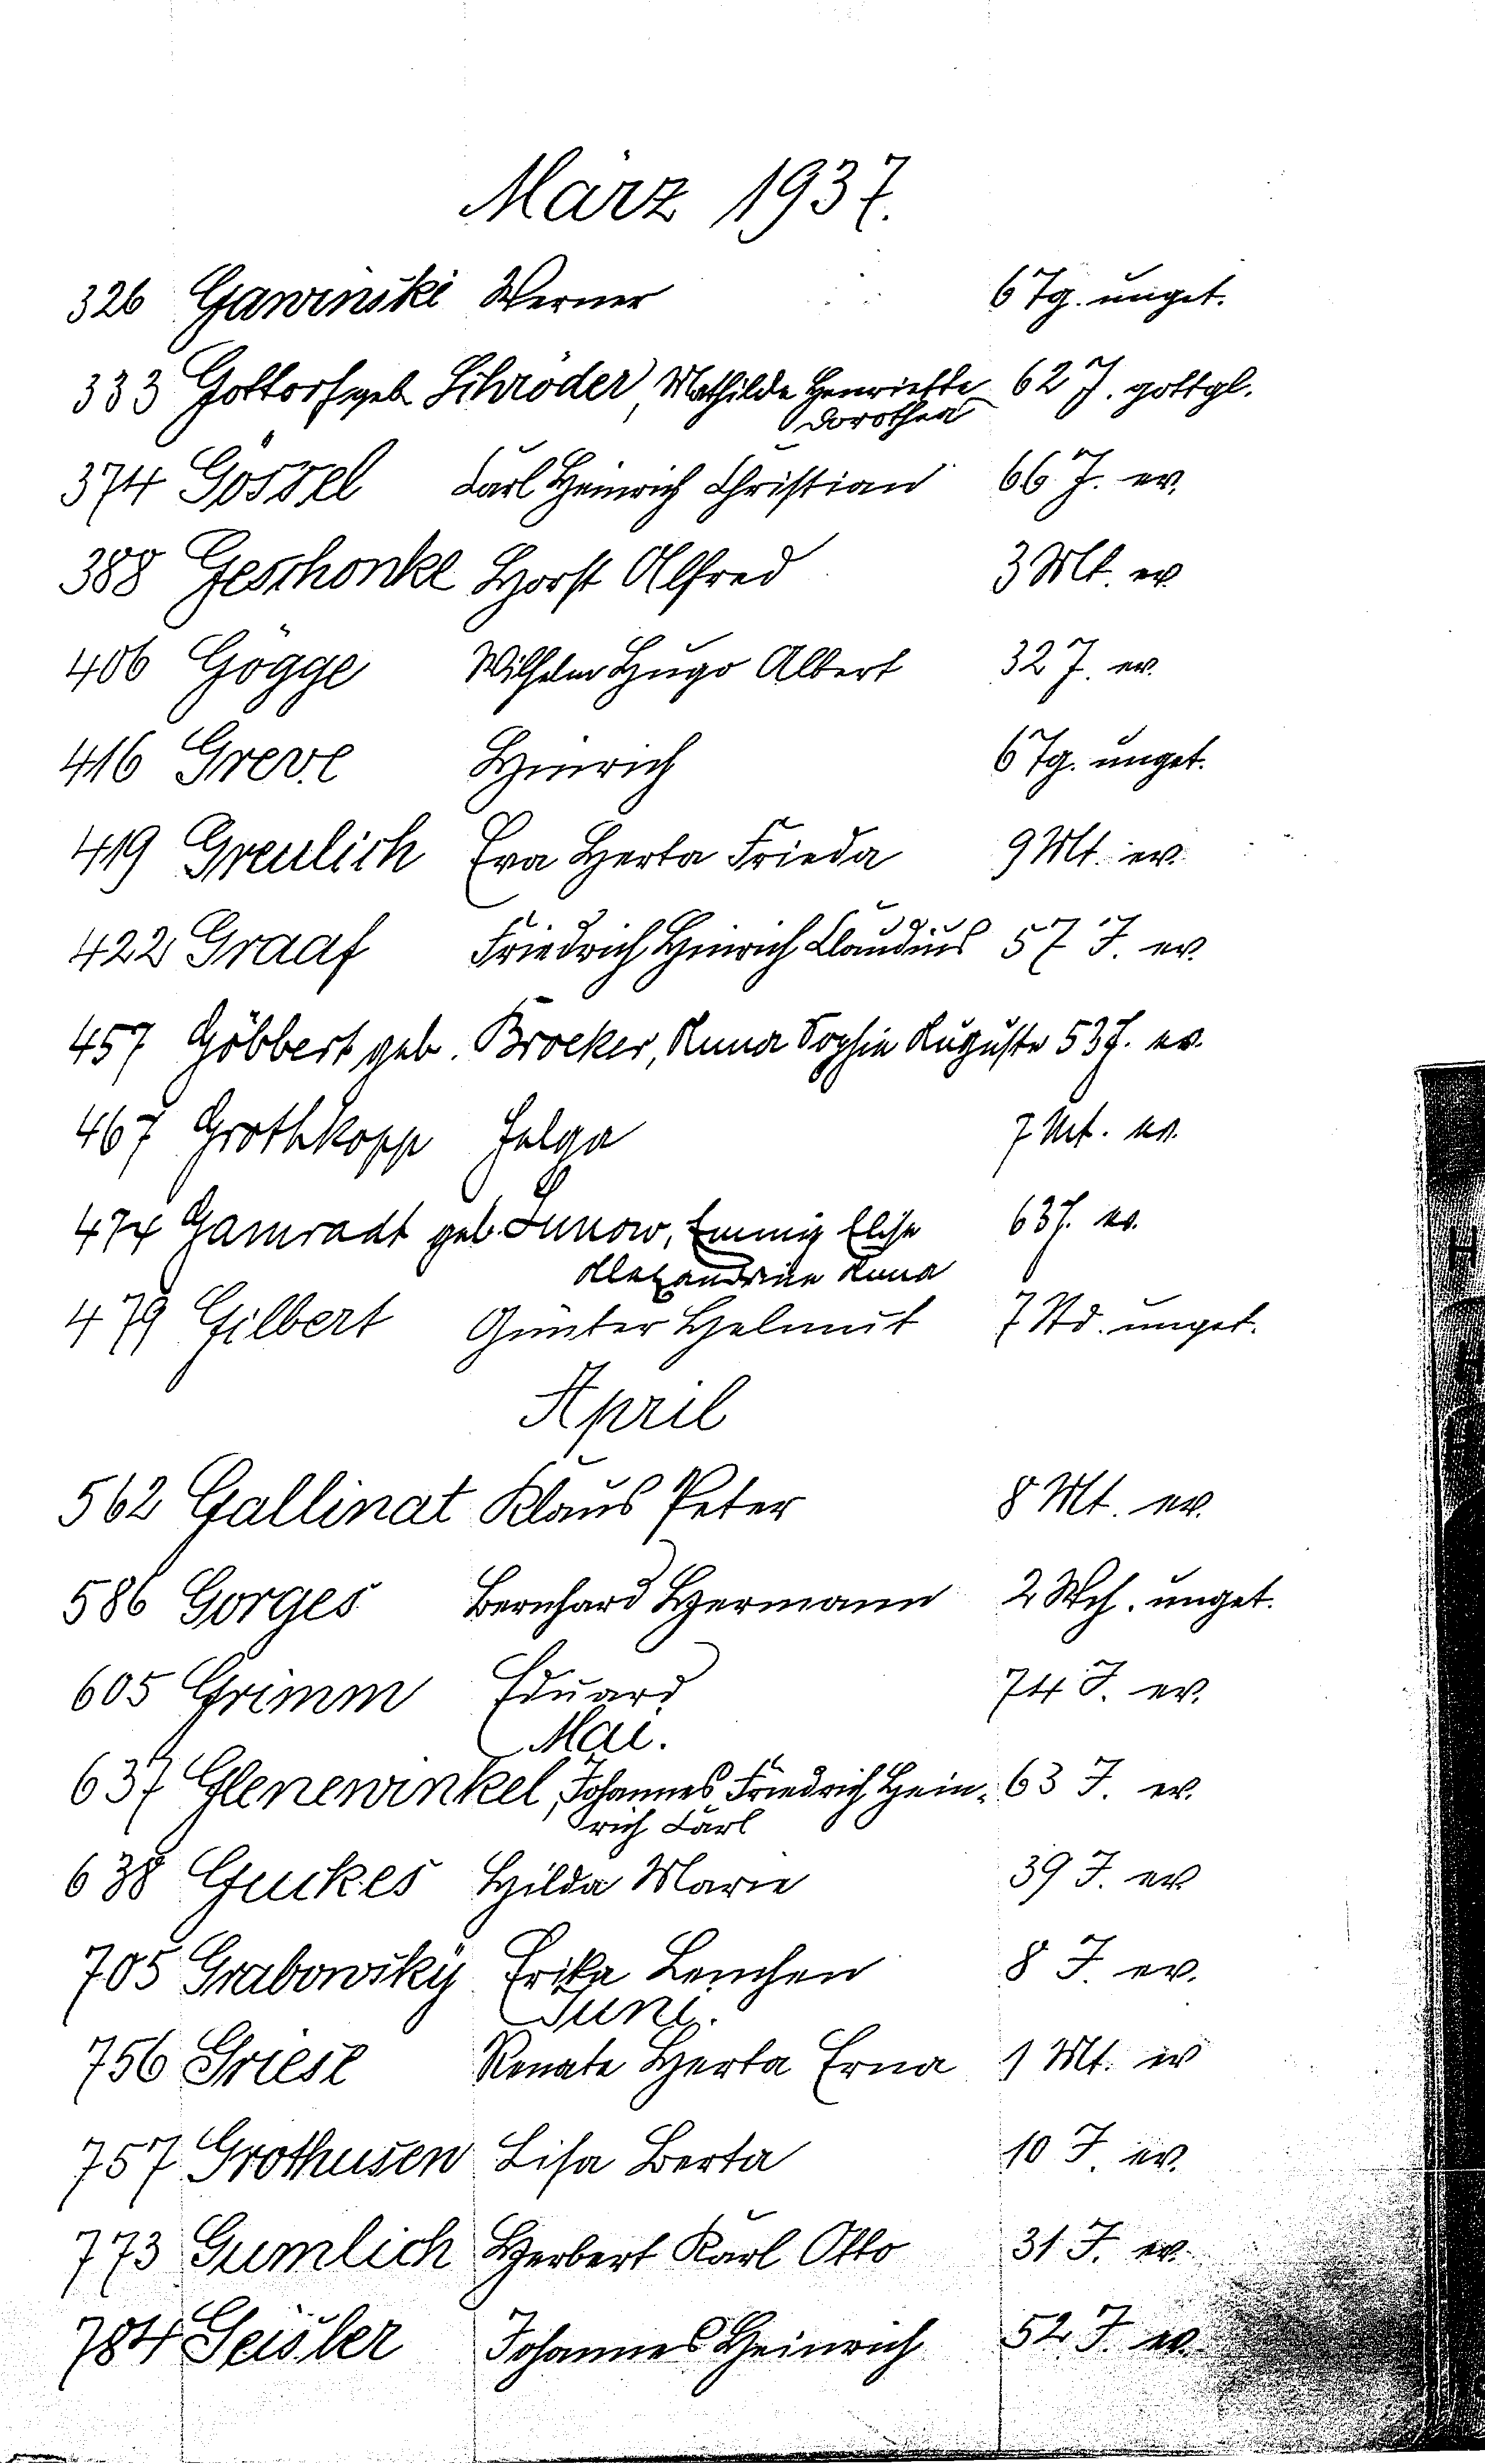 März 1937.
326 Gawinski Werner 6 Tg. unget.
333 Gottorf geb Schröder, Mathilde Henriette 62 J. gottgl.
Dorothea
374 Gössel Carl Heinrich Christian 66 J. ev.
388 Geschonke Horst Alfred 3 Mt. ev.
406 Gögge Wilhelm Hugo Albert 32 J. ev.
416 Greve Hinrich 6 Tg. unget.
419 Greulich Eva Herta Frieda 9 Mt. ev.
422 Graaf Friedrich Hinrich Claudius 57 J. ev.
457 Göbbert geb. Broeker, Anna Sophie Auguste 53 J. ev.
467 Grothkopp Helga 7 Mt. ev.
474 Gamradt geb. Lunow, Emmy Elise 63 J. ev.
Alexandrine Anna
479 Gilbert Günter Helmut 7 Std. unget.
April
562 Gallinat Klaus Peter 8 Mt. ev.
586 Gorges Bernhard Hermann 2 Wch. unget.
605 Grimm Eduard 74 J. ev.
Mai.
637 Glenewinkel, Johannes Friedrich Hein- 63 J. ev.
rich Carl
638 Guckes Hilda Marie 39 J. ev.
705 Grabowsky Erika Lenchen 8 J. ev.
Juni.
756 Griese Renate Herta Erna 1 Mt. ev
757 Grothusen Lisa Berta 10 J. ev.
773 Gumlich Herbert Karl Otto 31 J. ev.
784 Geisler Johannes Heinrich 52 J. ev.